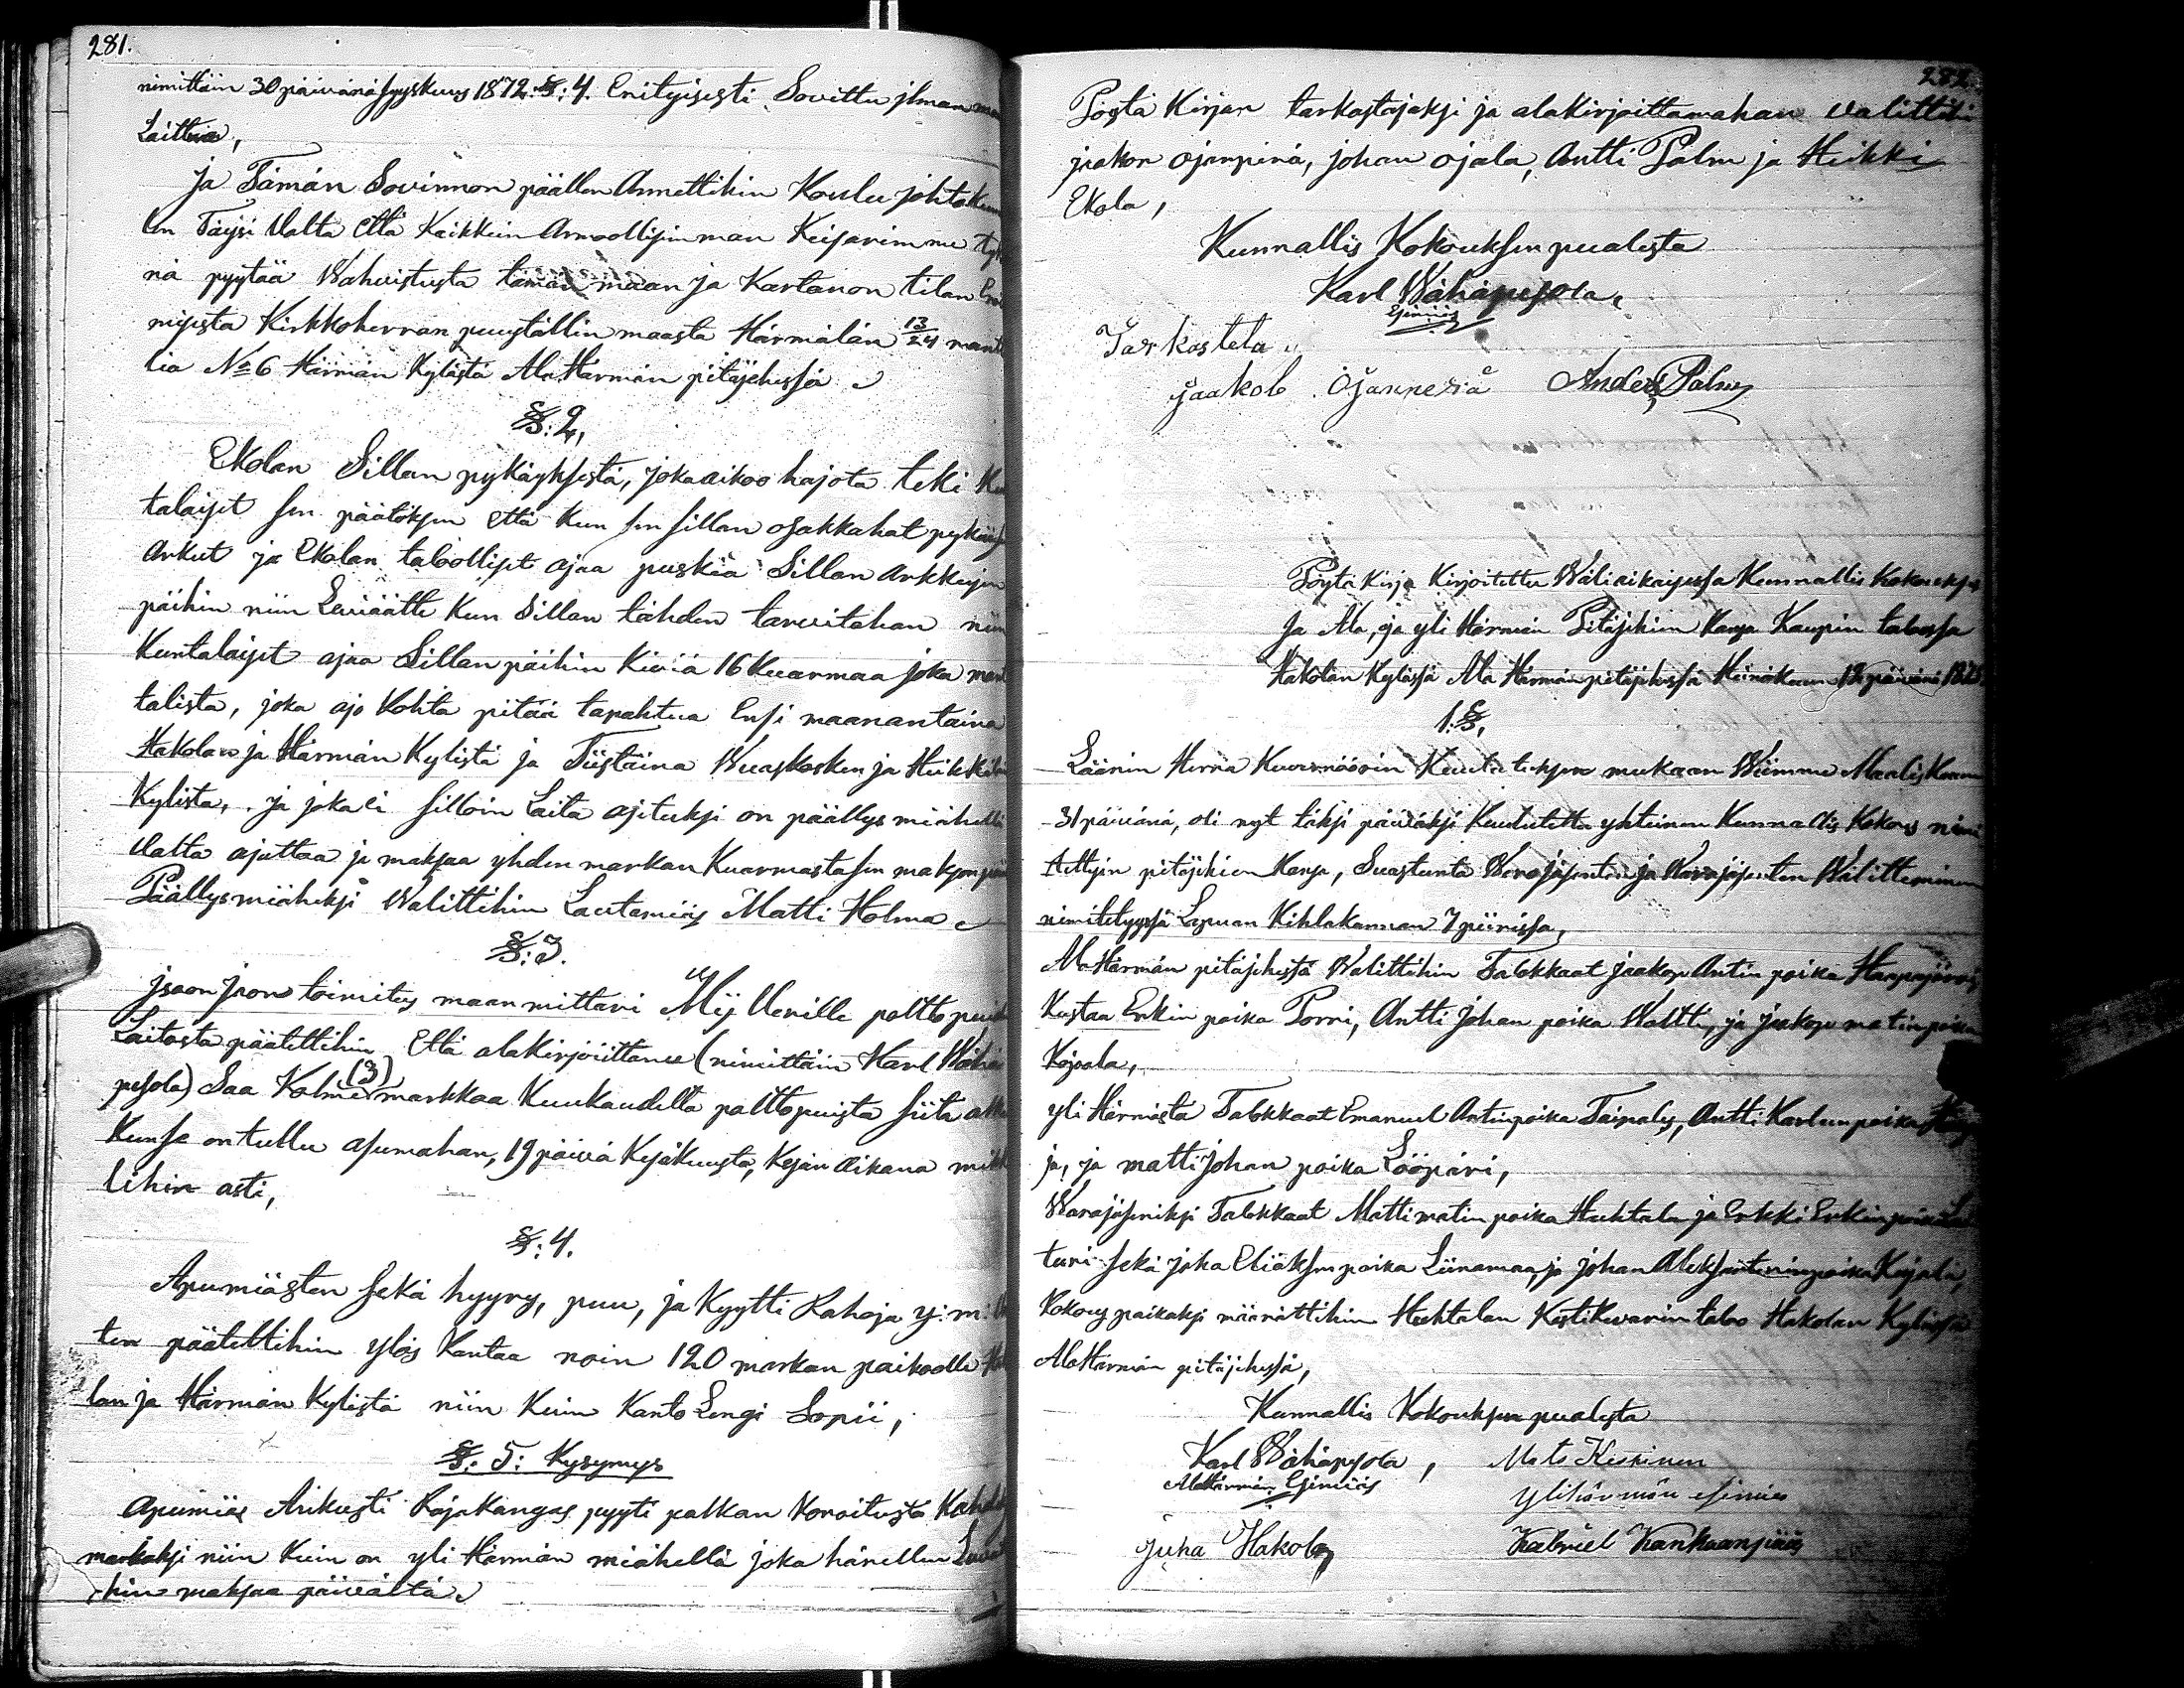 281.
nimittäin 30 päivänä syyskuus 1872. §: 4. Erityisesti Sovittu ilman
Laittua,
ja Tämän Sovinnon päällen Annettihin Koulu johtokun
len Täysi Valta Että Kaikkein Armoollisimman Keisarimme
nä pyytää Wahvistusta tämän maan ja Kartanon tilan
misesta Kirkkoherran puuställin maasta Härmälän 13/24 mant
lia No 6 Härmän Kylästä Ala Härmän pitäjehessä
§: 2,
Ekolan Sillan pykäyksestä, joka aikoo hajota teki Kun
talaiset sen päätöksen että Kun sen sillan osakkahat pykää
Arkut ja Ekolan taloolliset ajaa puskia Sillan Arkkujen
päihin niin Leviäätte Kun Sillan tähden tarvitahan niin
Kuntalaiset ajaa Sillan päihin Kiviä 16 Kuarmaa joka man
talista, joka ajo Kohta pitää tapahtua Ensi maanantaina
Hakolan ja Härmän Kylistä ja Tiistaina Wuaskosken ja Heikkilän
Kylista, ja joka ei silloin Laita ajetuksi on päällys miähellä
Valta ajattaa ja maksaa yhden markan Kuarmasta sen makson
Päällysmiäheksi Walittihin Lautamiäs Matti Holma
§: 3.
Ison jaon toimitus maanmittari Mij Uerille polttopuid
Laitosta päätettihin Että alakirjoittanu (nimittäin Karl Wähä
pesola) Saa Kolme (3) markkaa Kuukaudelta polttopuista siitä
Kun se on tullu asumahan, 19 päivä Kesäkuusta, Kesän aikana mikk
lihin asti,
§: 4.
Apumiästen sekä hyyry, puu, ja Kyytti Rahoja y: m:
ten päätettihin ylös Kantaa noin 120 markan paikoolle
lan ja Härmän Kylistä niin Kuin Kanto Lengi Sopii,
§: 5: Kysymys
Apumiäs Arikusti Rajakangas pyyti palkan Koroitusta
markaksi niin Kuin on yli Härmän miähellä joka hänellen
hin maksaa päivältä
282.
Pöytä Kirjan tarkastajaksi ja alakirjoittamahan valittihin
jaakoo Ojanperä, Johan Ojala, Antti Palm ja Heikki
Ekola,
Kunnallis Kokouksen puolesta
Karl Wähäpesola,
Esimiäs
Tarkastetu
Jaakob Ojanperä Anders Palm
Pöytä Kirja Kirjoitettu Wäliaikaisessa Kunnallis Kokouksessa
Ja Ala, ja yli Härmän Pitäjehien Kansa Kaupin talossa
Hakolan Kylässä Ala Härmän pitäjehessä Heinäkuun 12 päivänä
1. §,
Läänin Herra Kuvernöörin Kuulutuksen mukaan Wiimme Maaliskuun
31 päivänä, oli nyt täksi päiväksi Kuulutettu yhteinen Kunnallis Kokous nimi
tettyin pitäjehien Kansa, Suastunta Warajäsenten ja Warajäsenten Walitteminen
nimitetyssä Lapuan Kihlakunnan 7 piirissä,
Ala Härmän pitäjehestä Walittihin Talokkaat Jaakop Antin poika Haapajärvi,
Kustaa Erkin poika Porri, Antti Johan poika Waltti, ja Jaakop matin poika
Kojoala,
yli Härmästä Talokkaat Emanuel Antinpoika Taipalus, Antti Karlun poika
ja, ja matti Johan poika Lööpäri,
Warajäseniksi Talokkaat Matti matin poika Huhtala ja Erkki Erkin poika
turi sekä Joha Eliäksen poika Liinamaa, ja Johan Aleksanterinpoika Kojola,
Kokous paikaksi määrättihin Huhtalan Kestikevarin taloo Hakolan Kylässä
Ala Härmän pitäjehessä,
Kunnallis Kokouksen puolesta
Karl Wähäpesola, Mats Keskinen
Ala Härmän Esimiäs ylihärmän esimies
Juha Hakola Kabriel Kankaanpää